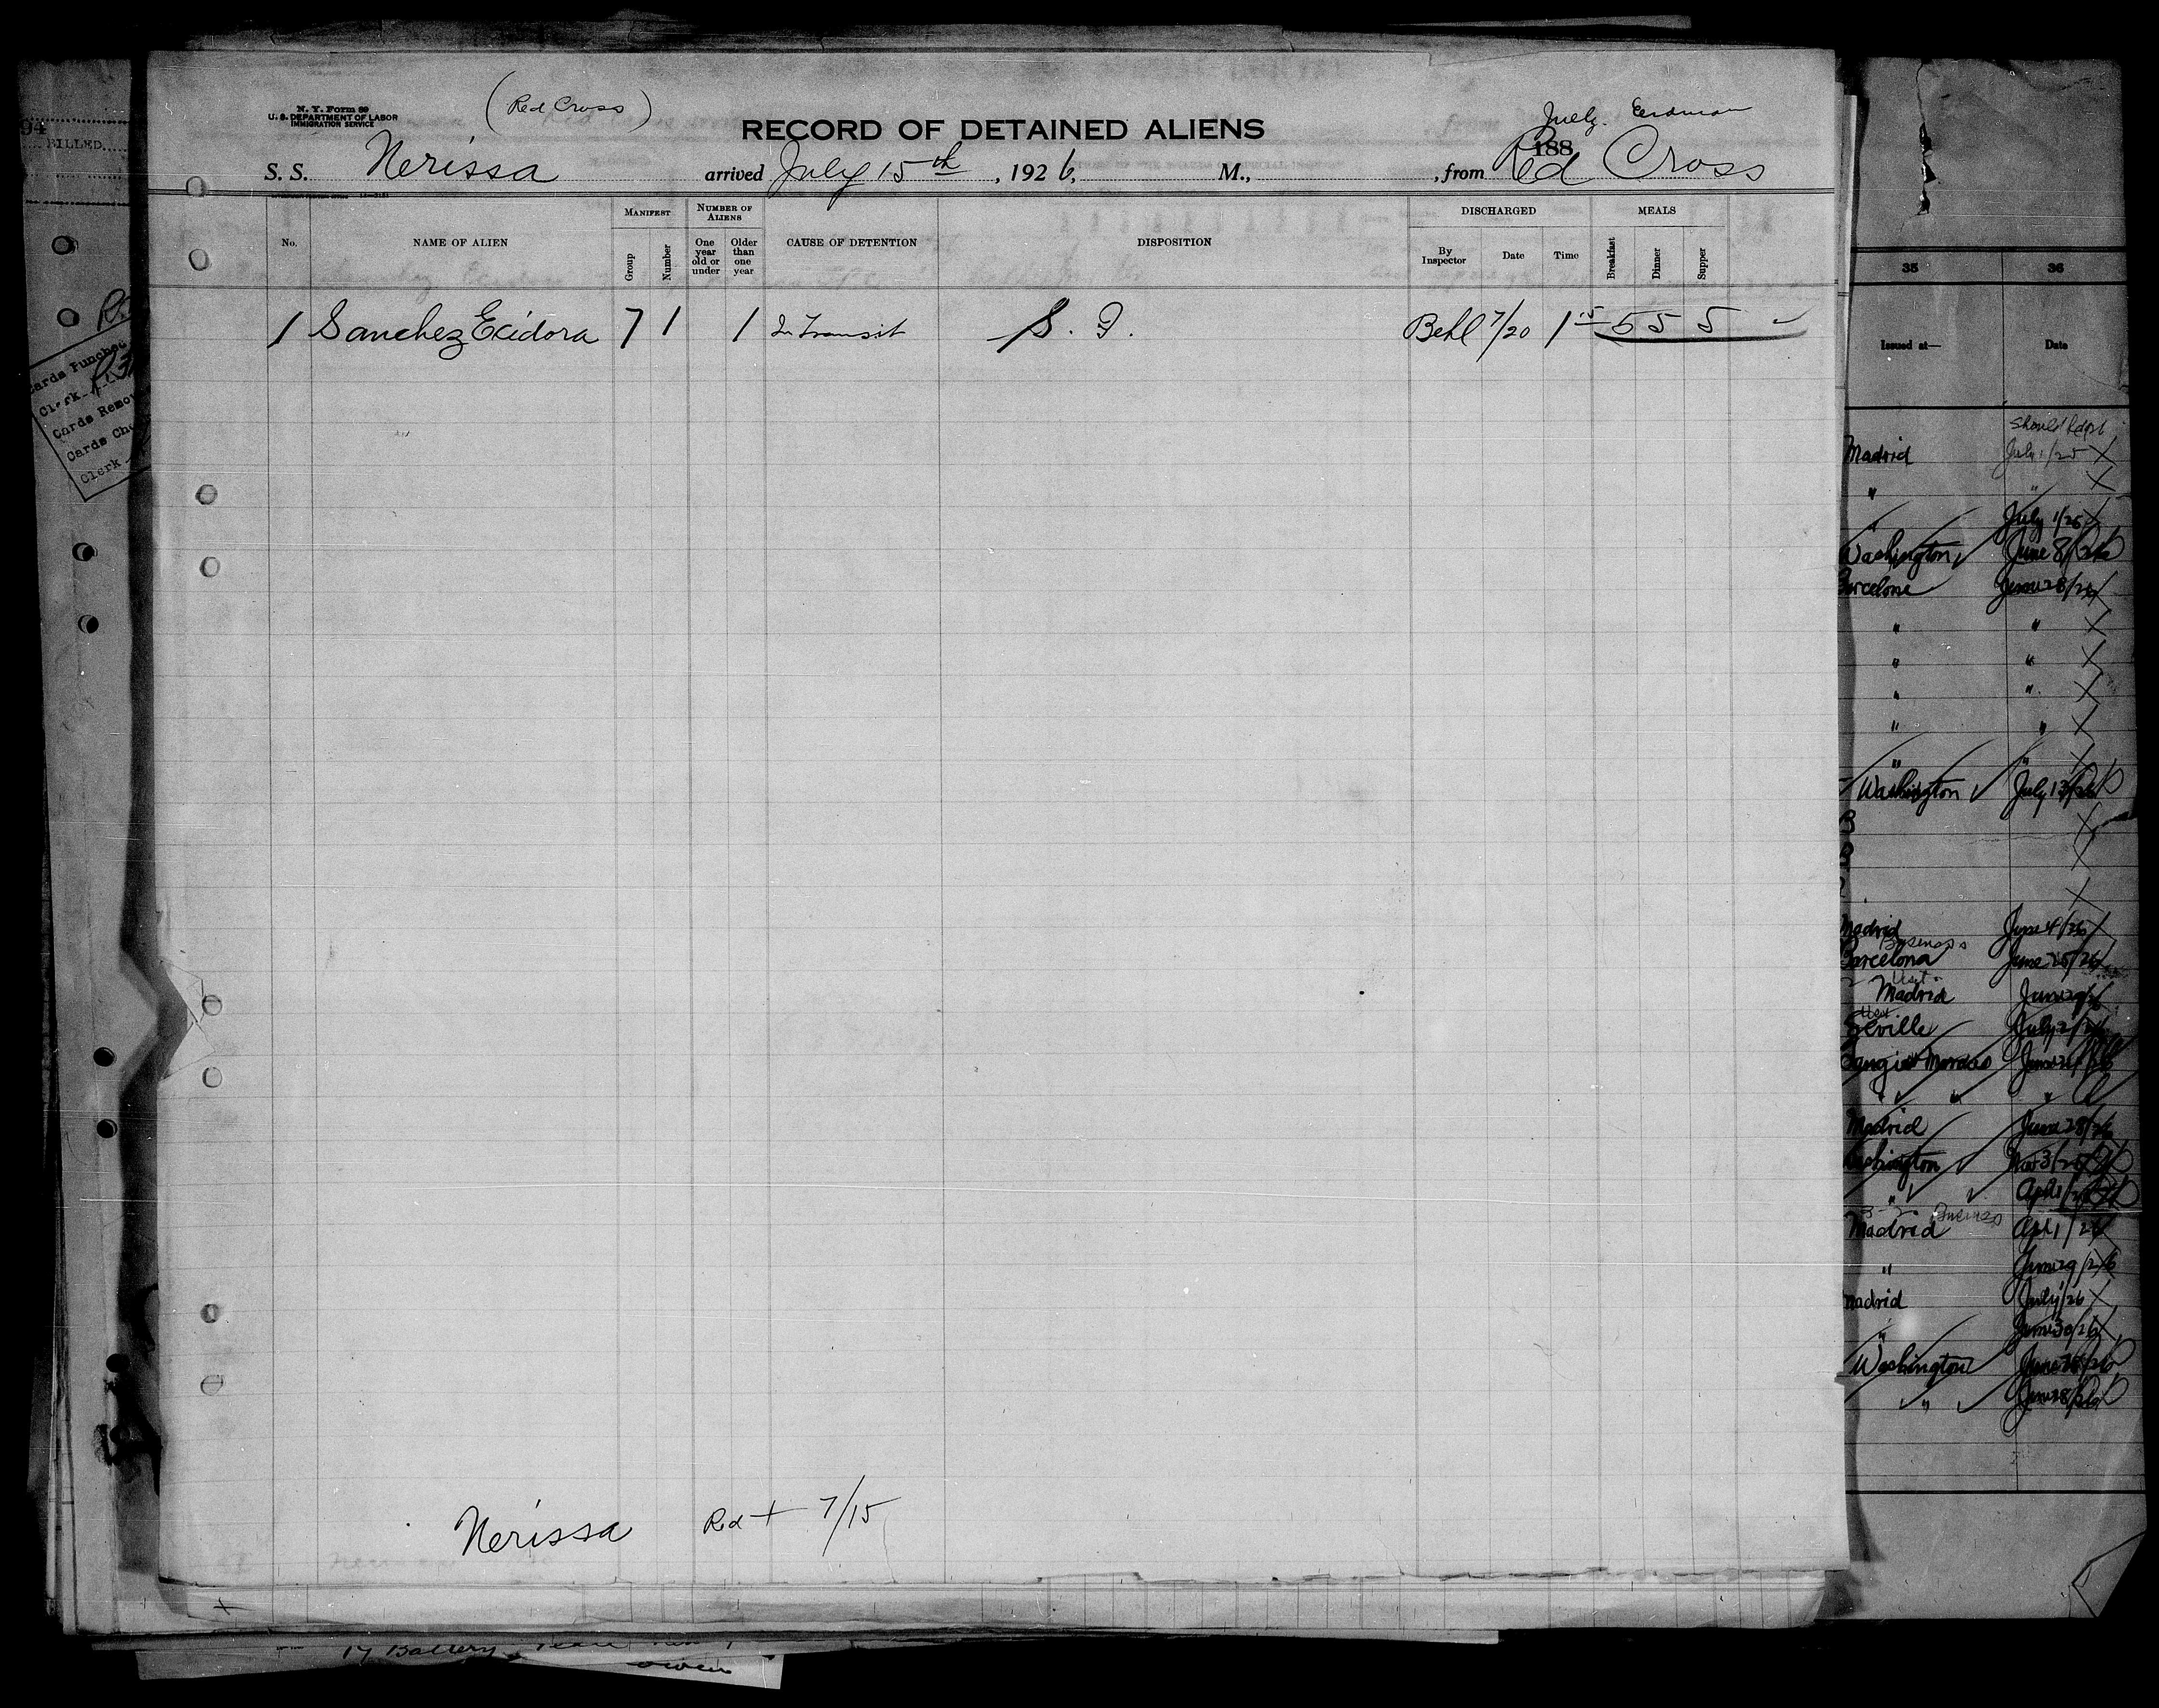 N. Y. Form 89
U. S. DEPARTMENT OF LABOR
IMMIGRATION SERVICE
(Red Cross)
RECORD OF DETAINED ALIENS
188
S. S. Nerissa arrived July 15th, 1926, M., , from Red Cross
No. NAME OF ALIEN MANIFEST Group Number NUMBER OF ALIENS One year old or under Older than one year CAUSE OF DETENTION DISPOSITION DISCHARGED By Inspector Date Time MEALS Breakfast Dinner Supper
1 Sanchez Ecidora 7 1 1 In Transit S. I. Behl 7/20 1 15 5 5 5
Nerissa Red + 7/15
94
BILLED
Cards Punched
Clerk
Cards Remo
Cards Che
Clerk
35 36
Issued at— Date
Madrid July 1/25 X
" " X
" July 1/26
Washington June 8/26
Barcelone June 28/26
" " X
" " X
" " X
" " X
" "
Washington July 13/26
Madrid June 4/26
Business
Barcelona June 25/26
Madrid June 29/26
Seville July 2/26
" "
Madrid June 28/26
Washington Nov 3/25
"
Business
Madrid Apl 1/26
" June 29/26
Madrid July 1/26
" June 30/26
Washington June 25/26
" June 28/26
17 Battery